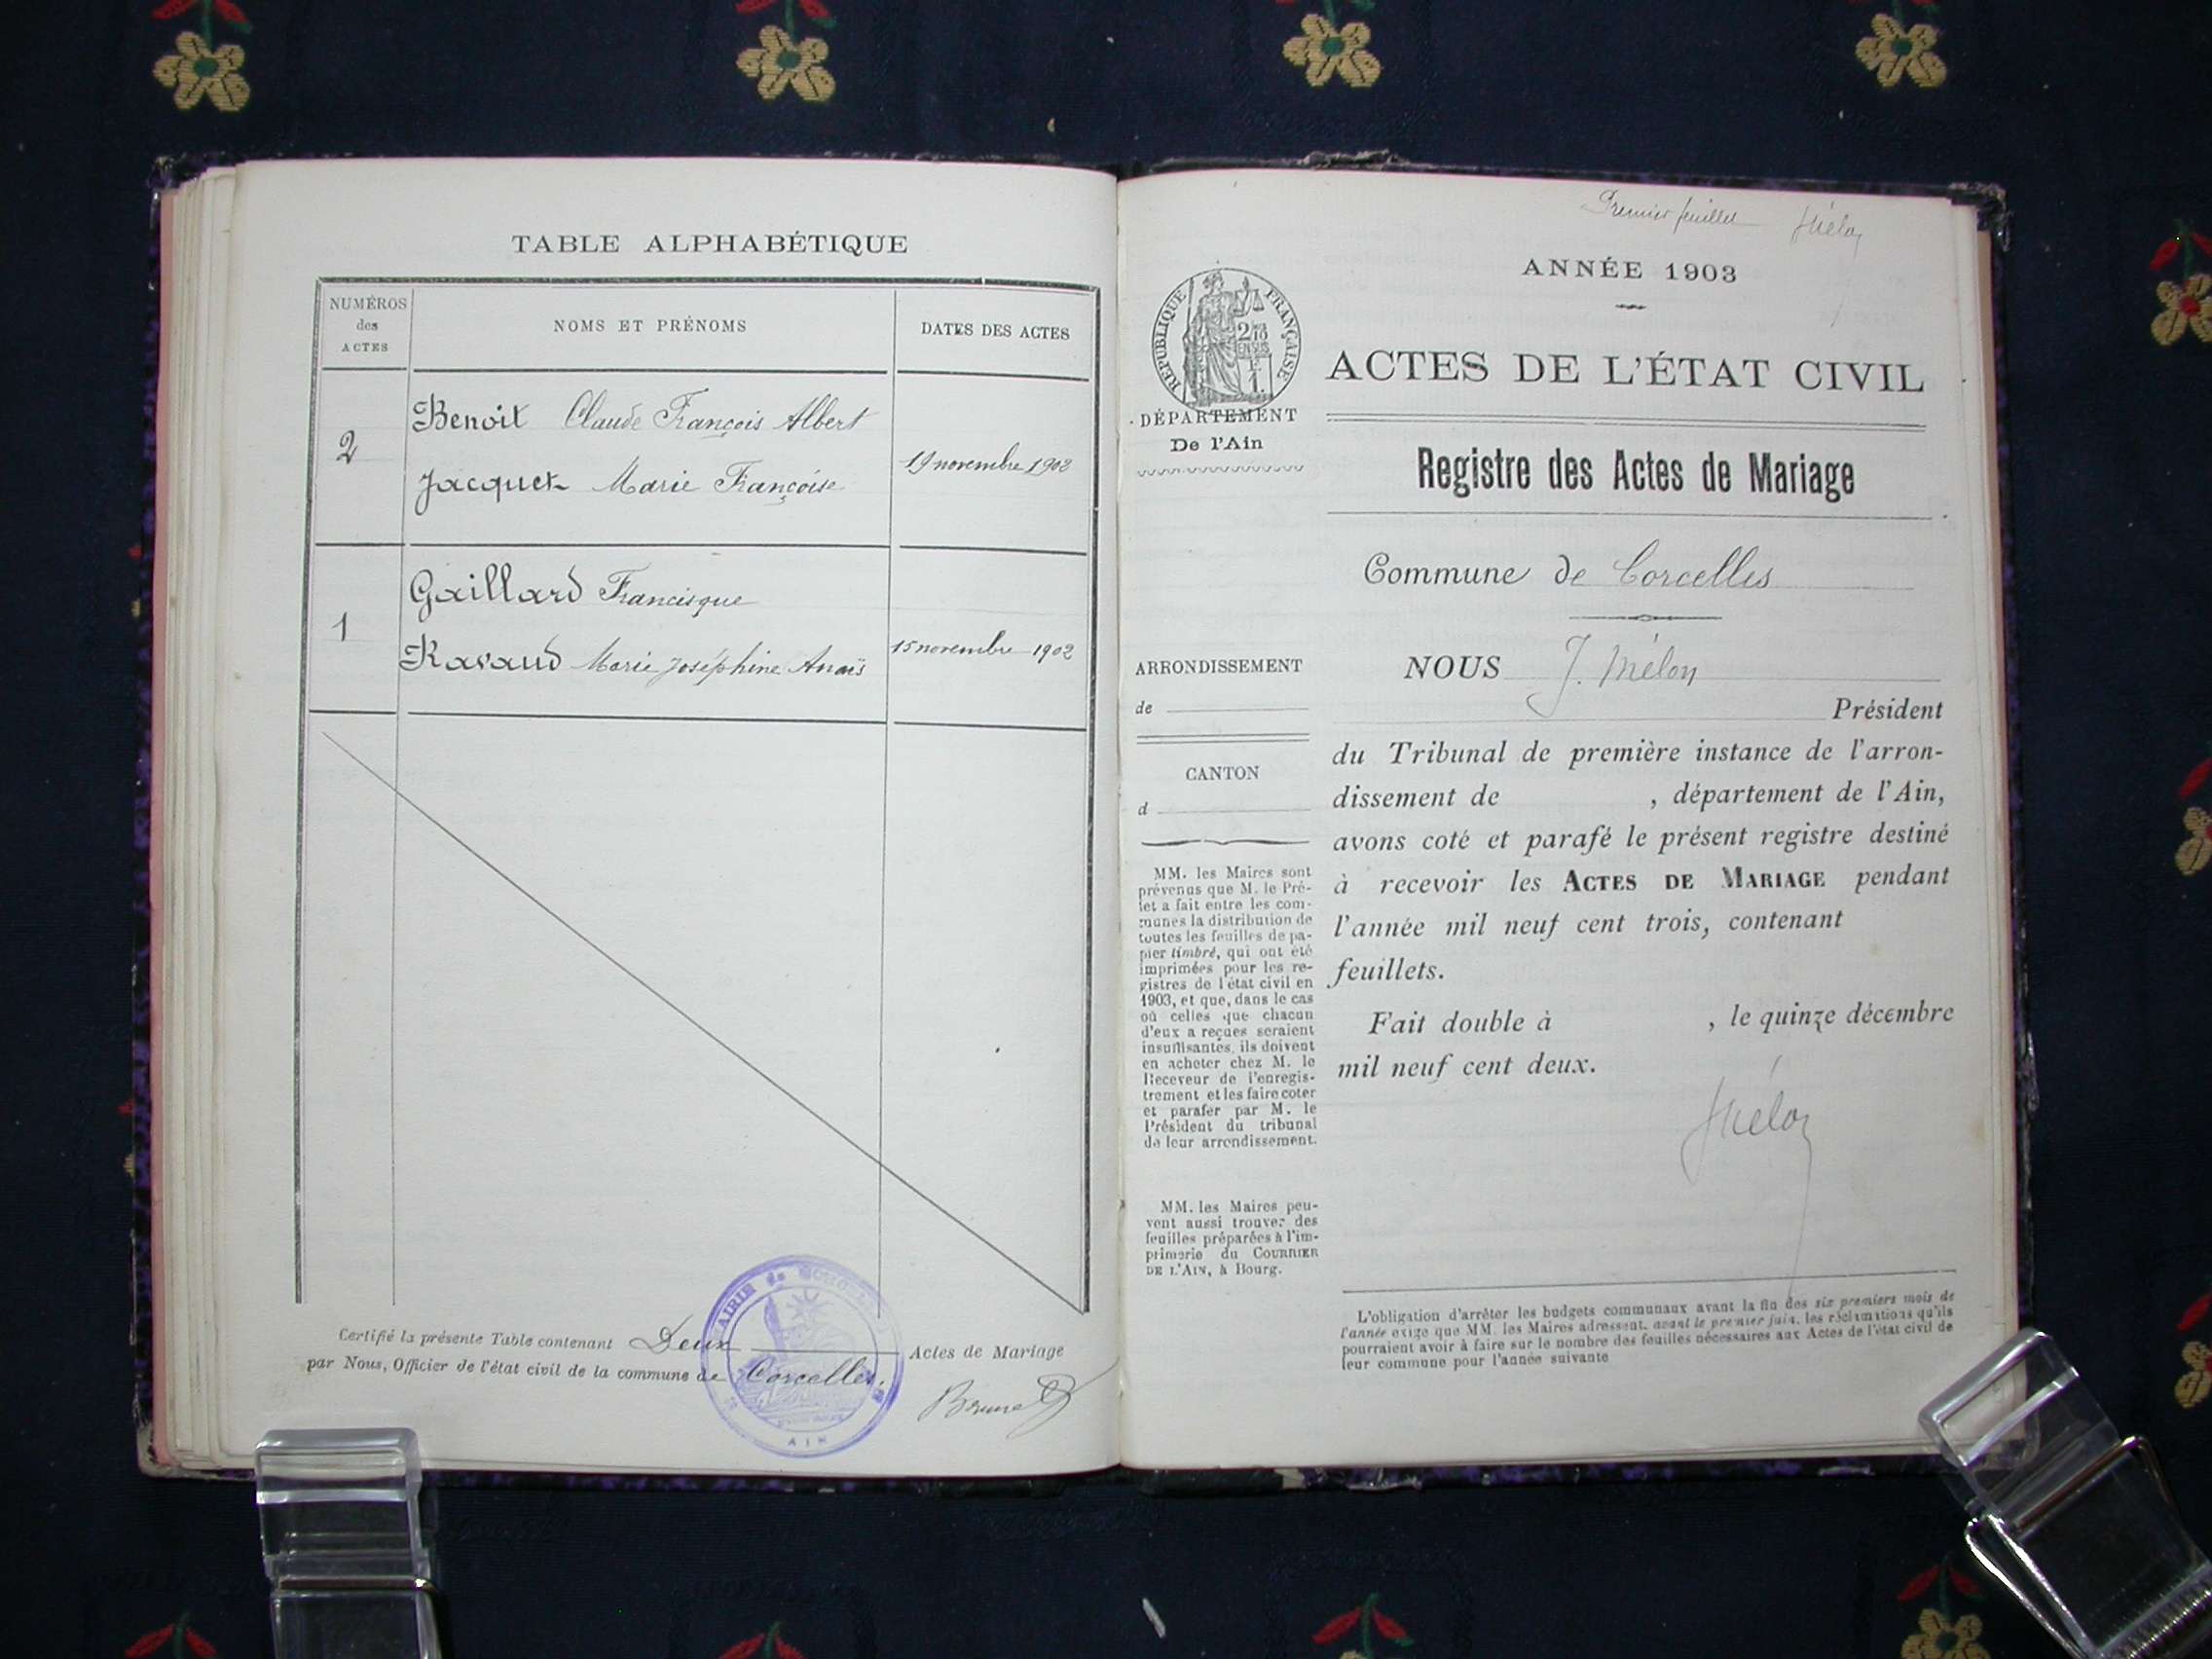 TABLE ALPHABÉTIQUE
NUMÉROS
des
ACTES
NOMS ET PRÉNOMS
DATES DES ACTES
2
Benoit Claude François Albert
Jacquet Marie Françoise
19 novembre 1902
1
Gaillard Francisque
Ravaud Marie Joséphine Anaïs
15 novembre 1902
Certifié la présente Table contenant Deux Actes de Mariage
par Nous, Officier de l'état civil de la commune de Corcelles.
MAIRIE de
AIN
Premier feuillet
ANNÉE 1903
RÉPUBLIQUE FRANÇAISE
DÉPARTEMENT
De l'Ain
ACTES DE L'ÉTAT CIVIL
Registre des Actes de Mariage
Commune de Corcelles
ARRONDISSEMENT
de
CANTON
d
MM. les Maires sont
prévenus que M. le Pré-
fet a fait entre les com-
munes la distribution de
toutes les feuilles de pa-
pier timbré, qui ont été
imprimées pour les re-
gistres de l'état civil en
1903, et que, dans le cas
où celles que chacun
d'eux a reçues seraient
insuffisantes, ils doivent
en acheter chez M. le
Receveur de l'enregis-
trement et les faire coter
et parafer par M. le
Président du tribunal
de leur arrondissement.
MM. les Maires peu-
vent aussi trouver des
feuilles préparées à l'im-
primerie du COURRIER
DE L'AIN, à Bourg.
NOUS J. Mélon
Président
du Tribunal de première instance de l'arron-
dissement de , département de l'Ain,
avons coté et parafé le présent registre destiné
à recevoir les ACTES DE MARIAGE pendant
l'année mil neuf cent trois, contenant
feuillets.
Fait double à , le quinze décembre
mil neuf cent deux.
L'obligation d'arrêter les budgets communaux avant la fin des six premiers mois de
l'année exige que MM. les Maires adressent, avant le premier juin, les réclamations qu'ils
pourraient avoir à faire sur le nombre des feuilles nécessaires aux Actes de l'état civil de
leur commune pour l'année suivante